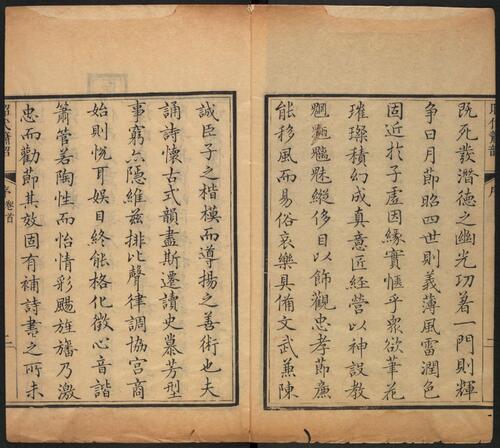 既死發潛德之幽光功著一門則輝
争日月節昭四世則義薄風雷潤色
固近扵子虛因緣實愜乎衆欲筆花
璀璨積幻成真意匠經營以神設教
魍魎魑魅縱侈目以餙觀忠孝節廉
能移風而易俗哀樂具備文武兼陳
誠臣子之楷模而導揚之善術也夫
誦詩懷古式韻盡斯遷讀史慕芳型
事窮亦隱維兹排比聲律調協宮商
始則悅耳娛目終能格化徵心音諧
簫管若陶性而怡情彩颺旌旛乃激
忠而勸節其效固有補詩書之所未
昭代簫韶
序 卷首